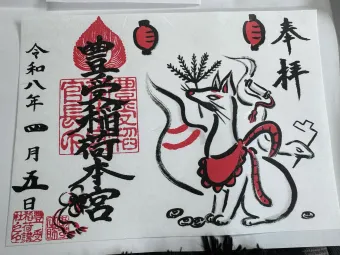 奉拝
豊受稲荷本宮
令和八年四月五日